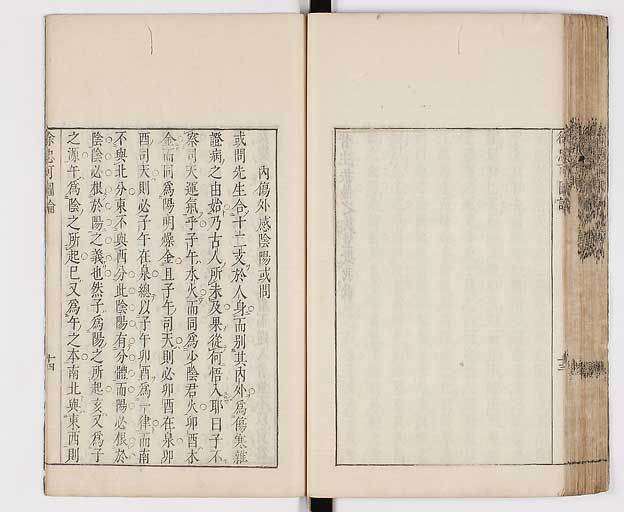 內傷外感陰陽或問
或問先生合十二支於人身而別其內外爲傷寒雜
證病之由始乃古人所未及果從何悟入耶曰子不
察司天運氣乎子午水火而同爲少陰君火卯酉木
金而同爲陽明燥金且子午司天則必卯酉在泉卯
酉司天則必子午在泉總以子午卯酉爲一律而南
不與北分東不與西分此陰陽有分體而陽必根於
陰陰必根於陽之義也然子爲陽之所起亥又爲子
之源午爲陰之所起巳又爲午之本南北與東西則
徐忠可圖論
十四
十三